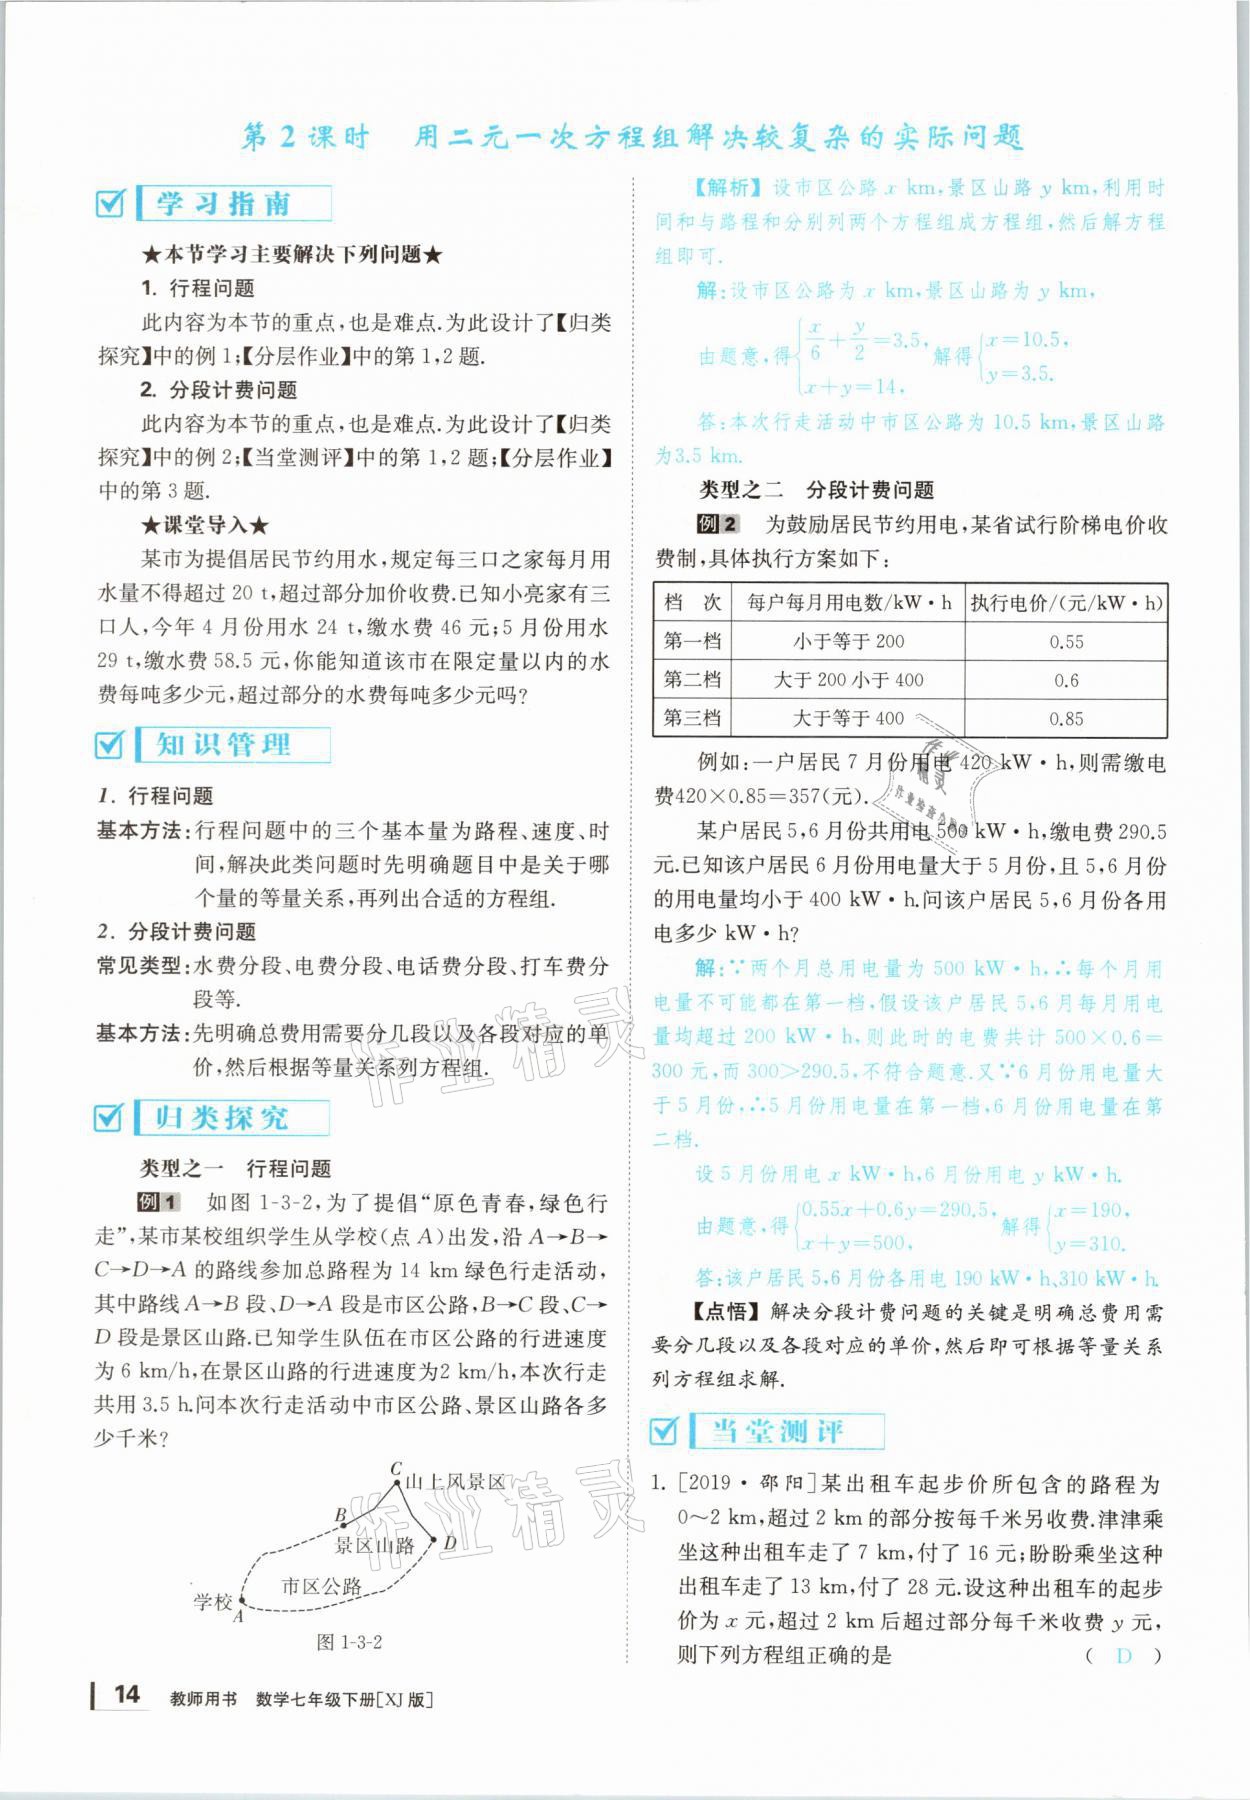 第2课时 用二元一次方程组解决较复杂的实际问题
学习指南
★本节学习主要解决下列问题★
1. 行程问题
此内容为本节的重点,也是难点.为此设计了【归类
探究】中的例1;【分层作业】中的第1,2题.
2. 分段计费问题
此内容为本节的重点,也是难点.为此设计了【归类
探究】中的例2;【当堂测评】中的第1,2题;【分层作业】
中的第3题.
★课堂导入★
某市为提倡居民节约用水,规定每三口之家每月用
水量不得超过20 t,超过部分加价收费.已知小亮家有三
口人,今年4月份用水24 t,缴水费46元;5月份用水
29 t,缴水费58.5元,你能知道该市在限定量以内的水
费每吨多少元,超过部分的水费每吨多少元吗?
知识管理
1. 行程问题
基本方法:行程问题中的三个基本量为路程、速度、时
间,解决此类问题时先明确题目中是关于哪
个量的等量关系,再列出合适的方程组.
2. 分段计费问题
常见类型:水费分段、电费分段、电话费分段、打车费分
段等.
基本方法:先明确总费用需要分几段以及各段对应的单
价,然后根据等量关系列方程组.
归类探究
类型之一 行程问题
例1 如图1-3-2,为了提倡“原色青春,绿色行
走”,某市某校组织学生从学校(点A)出发,沿A→B→
C→D→A的路线参加总路程为14 km绿色行走活动,
其中路线A→B段、D→A段是市区公路,B→C段、C→
D段是景区山路.已知学生队伍在市区公路的行进速度
为6 km/h,在景区山路的行进速度为2 km/h,本次行走
共用3.5 h.问本次行走活动中市区公路、景区山路各多
少千米?
C 山上风景区
B
景区山路 D
市区公路
学校 A
图1-3-2
14 教师用书 数学七年级下册[XJ版]
【解析】设市区公路x km,景区山路y km,利用时
间和与路程和分别列两个方程组成方程组,然后解方程
组即可.
解:设市区公路为x km,景区山路为y km,
由题意,得{x/6+y/2=3.5, x+y=14, 解得{x=10.5, y=3.5.
答:本次行走活动中市区公路为10.5 km,景区山路
为3.5 km.
类型之二 分段计费问题
例2 为鼓励居民节约用电,某省试行阶梯电价收
费制,具体执行方案如下:
档 次 每户每月用电数/kW·h 执行电价/(元/kW·h)
第一档 小于等于200 0.55
第二档 大于200小于400 0.6
第三档 大于等于400 0.85
例如:一户居民7月份用电420 kW·h,则需缴电
费420×0.85=357(元).
某户居民5,6月份共用电500 kW·h,缴电费290.5
元.已知该户居民6月份用电量大于5月份,且5,6月份
的用电量均小于400 kW·h.问该户居民5,6月份各用
电多少kW·h?
解:∵两个月总用电量为500 kW·h,∴每个月用
电量不可能都在第一档,假设该户居民5,6月每月用电
量均超过200 kW·h,则此时的电费共计500×0.6=
300元,而300>290.5,不符合题意.又∵6月份用电量大
于5月份,∴5月份用电量在第一档,6月份用电量在第
二档.
设5月份用电x kW·h,6月份用电y kW·h.
由题意,得{0.55x+0.6y=290.5, x+y=500, 解得{x=190, y=310.
答:该户居民5,6月份各用电190 kW·h、310 kW·h.
【点悟】解决分段计费问题的关键是明确总费用需
要分几段以及各段对应的单价,然后即可根据等量关系
列方程组求解.
当堂测评
1. [2019·邵阳]某出租车起步价所包含的路程为
0～2 km,超过2 km的部分按每千米另收费.津津乘
坐这种出租车走了7 km,付了16元;盼盼乘坐这种
出租车走了13 km,付了28元.设这种出租车的起步
价为x元,超过2 km后超过部分每千米收费y元,
则下列方程组正确的是 ( D )
作业精灵
作业精灵